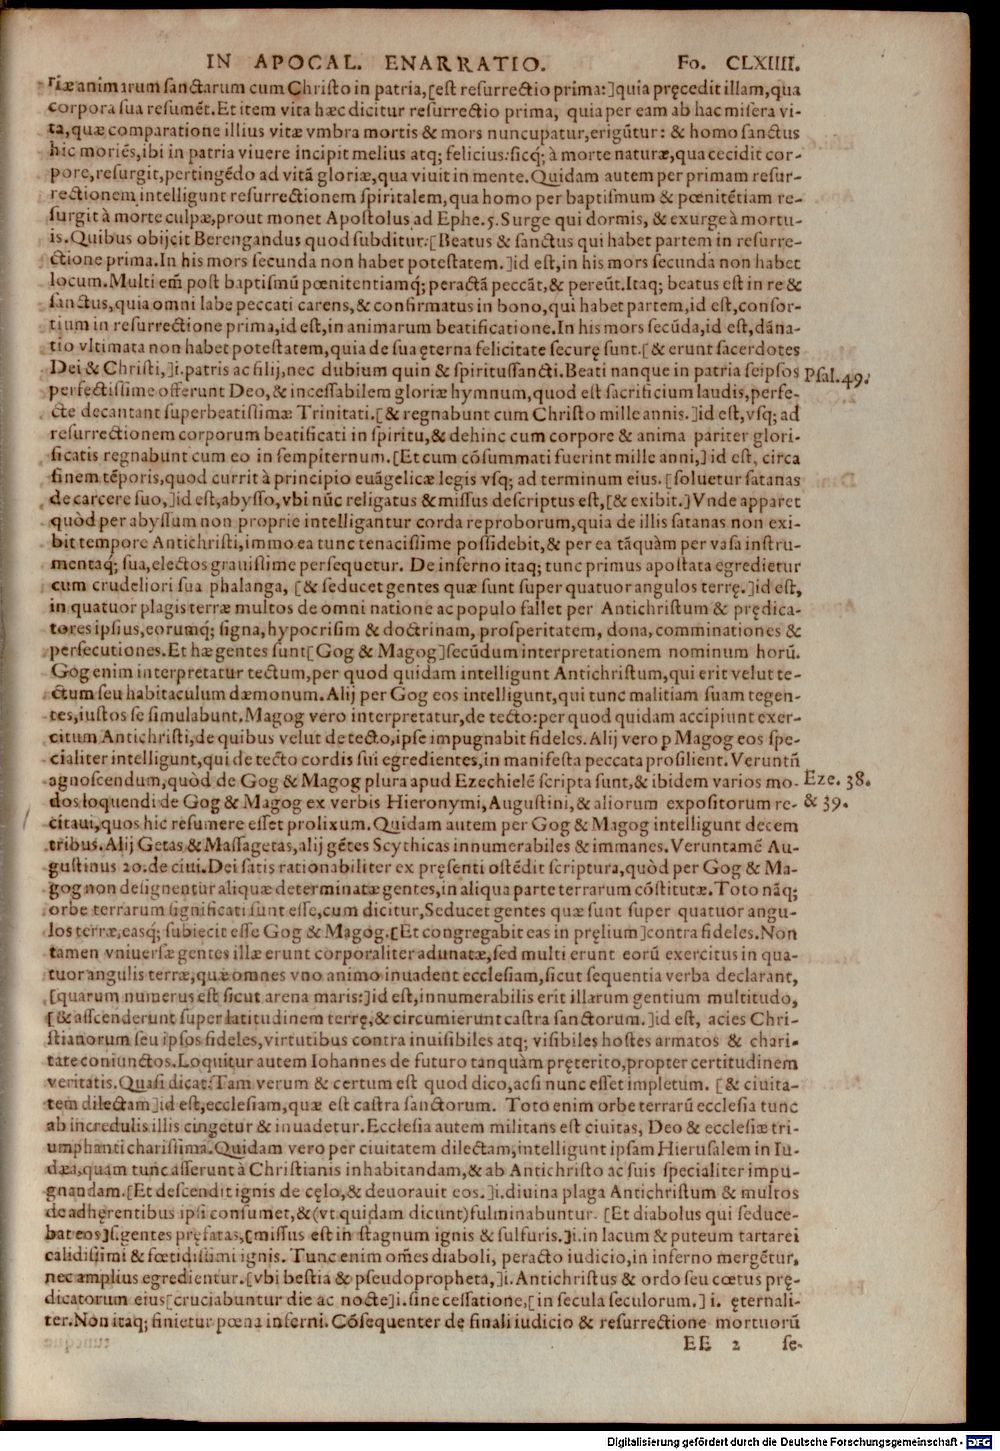 IN APOCAL. ENARRATIO. Fo. CLXIIII.
riæ animarum sanctarum cum Christo in patria, [est resurrectio prima:] quia pręcedit illam, qua
corpora sua resumẽt. Et item vita hæc dicitur resurrectio prima, quia per eam ab hac misera vi-
ta, quæ comparatione illius vitæ vmbra mortis & mors nuncupatur, erigũtur: & homo sanctus
hic moriẽs, ibi in patria viuere incipit melius atq; felicius: sicq; à morte naturæ, qua cecidit cor-
pore, resurgit, pertingẽdo ad vitã gloriæ, qua viuit in mente. Quidam autem per primam resur-
rectionem intelligunt resurrectionem spiritalem, qua homo per baptismum & pœnitẽtiam re-
surgit à morte culpæ, prout monet Apostolus ad Ephe. 5. Surge qui dormis, & exurge à mortu-
is. Quibus obijcit Berengandus quod subditur: [Beatus & sanctus qui habet partem in resurre-
ctione prima. In his mors secunda non habet potestatem.] id est, in his mors secunda non habet
locum. Multi em̃ post baptismũ pœnitentiamq; peractã peccãt, & pereũt. Itaq; beatus est in re &
sanctus, quia omni labe peccati carens, & confirmatus in bono, qui habet partem, id est, consor-
tium in resurrectione prima, id est, in animarum beatificatione. In his mors secũda, id est, dãna-
tio vltimata non habet potestatem, quia de sua ęterna felicitate securę sunt. [& erunt sacerdotes
Dei & Christi,] i. patris ac filij, nec dubium quin & spiritussancti. Beati nanque in patria seipsos
Psal. 49.
perfectissime offerunt Deo, & incessabilem gloriæ hymnum, quod est sacrificium laudis, perfe-
cte decantant superbeatissimæ Trinitati. [& regnabunt cum Christo mille annis.] id est, vsq; ad
resurrectionem corporum beatificati in spiritu, & dehinc cum corpore & anima pariter glori-
ficatis regnabunt cum eo in sempiternum. [Et cum cõsummati fuerint mille anni,] id est, circa
finem tẽporis, quod currit à principio euãgelicæ legis vsq; ad terminum eius. [soluetur satanas
de carcere suo,] id est, abysso, vbi nũc religatus & missus descriptus est, [& exibit.] Vnde apparet
quòd per abyssum non proprie intelligantur corda reproborum, quia de illis satanas non exi-
bit tempore Antichristi, immo ea tunc tenacissime possidebit, & per ea tãquàm per vasa instru-
mentaq; sua, electos grauissime persequetur. De inferno itaq; tunc primus apostata egredietur
cum crudeliori sua phalanga, [& seducet gentes quæ sunt super quatuor angulos terrę.] id est,
in quatuor plagis terræ multos de omni natione ac populo fallet per Antichristum & prędica-
tores ipsius, eorumq; signa, hypocrisim & doctrinam, prosperitatem, dona, comminationes &
persecutiones. Et hæ gentes sunt [Gog & Magog] secũdum interpretationem nominum horũ.
Gog enim interpretatur tectum, per quod quidam intelligunt Antichristum, qui erit velut te-
ctum seu habitaculum dæmonum. Alij per Gog eos intelligunt, qui tunc malitiam suam tegen-
tes, iustos se simulabunt. Magog vero interpretatur, de tecto: per quod quidam accipiunt exer-
citum Antichristi, de quibus velut de tecto, ipse impugnabit fideles. Alij vero p Magog eos spe-
cialiter intelligunt, qui de tecto cordis sui egredientes, in manifesta peccata prosilient. Veruntñ
agnoscendum, quòd de Gog & Magog plura apud Ezechielẽ scripta sunt, & ibidem varios mo-
Eze. 38.
dos loquendi de Gog & Magog ex verbis Hieronymi, Augustini, & aliorum expositorum re-
& 39.
citaui, quos hic resumere esset prolixum. Quidam autem per Gog & Magog intelligunt decem
tribus. Alij Getas & Massagetas, alij gẽtes Scythicas innumerabiles & immanes. Veruntamẽ Au-
gustinus 20. de ciui. Dei satis rationabiliter ex pręsenti ostẽdit scriptura, quòd per Gog & Ma-
gog non designentur aliquæ determinatæ gentes, in aliqua parte terrarum cõstitutæ. Toto nãq;
orbe terrarum significati sunt esse, cum dicitur, Seducet gentes quæ sunt super quatuor angu-
los terræ, easq; subiecit esse Gog & Magog. [Et congregabit eas in pręlium] contra fideles. Non
tamen vniuersæ gentes illæ erunt corporaliter adunatæ, sed multi erunt eorũ exercitus in qua-
tuor angulis terræ, quæ omnes vno animo inuadent ecclesiam, sicut sequentia verba declarant,
[quarum numerus est sicut arena maris:] id est, innumerabilis erit illarum gentium multitudo,
[& asscenderunt super latitudinem terrę, & circumierunt castra sanctorum.] id est, acies Chri-
stianorum seu ipsos fideles, virtutibus contra inuisibiles atq; visibiles hostes armatos & chari-
tate coniunctos. Loquitur autem Iohannes de futuro tanquàm pręterito, propter certitudinem
veritatis. Quasi dicat: Tam verum & certum est quod dico, acsi nunc esset impletum. [& ciuita-
tem dilectam] id est, ecclesiam, quæ est castra sanctorum. Toto enim orbe terrarũ ecclesia tunc
ab incredulis illis cingetur & inuadetur. Ecclesia autem militans est ciuitas, Deo & ecclesiæ tri-
umphanti charissima. Quidam vero per ciuitatem dilectam, intelligunt ipsam Hierusalem in Iu-
dæa, quam tunc asserunt à Christianis inhabitandam, & ab Antichristo ac suis specialiter impu-
gnandam. [Et descendit ignis de cęlo, & deuorauit eos.] i. diuina plaga Antichristum & multos
de adhęrentibus ipsi consumet, & (vt quidam dicunt) fulminabuntur. [Et diabolus qui seduce-
bat eos] s. gentes pręfatas, [missus est in stagnum ignis & sulfuris.] i. in lacum & puteum tartarei
calidissimi & fœtidissimi ignis. Tunc enim om̃es diaboli, peracto iudicio, in inferno mergẽtur,
nec amplius egredientur. [vbi bestia & pseudopropheta,] i. Antichristus & ordo seu cœtus prę-
dicatorum eius [cruciabuntur die ac nocte] i. sine cessatione, [in secula seculorum.] i. ęternali-
ter. Non itaq; finietur pœna inferni. Cõsequenter dę finali iudicio & resurrectione mortuorũ
EE 2 se-
Digitalisierung gefördert durch die Deutsche Forschungsgemeinschaft - DFG